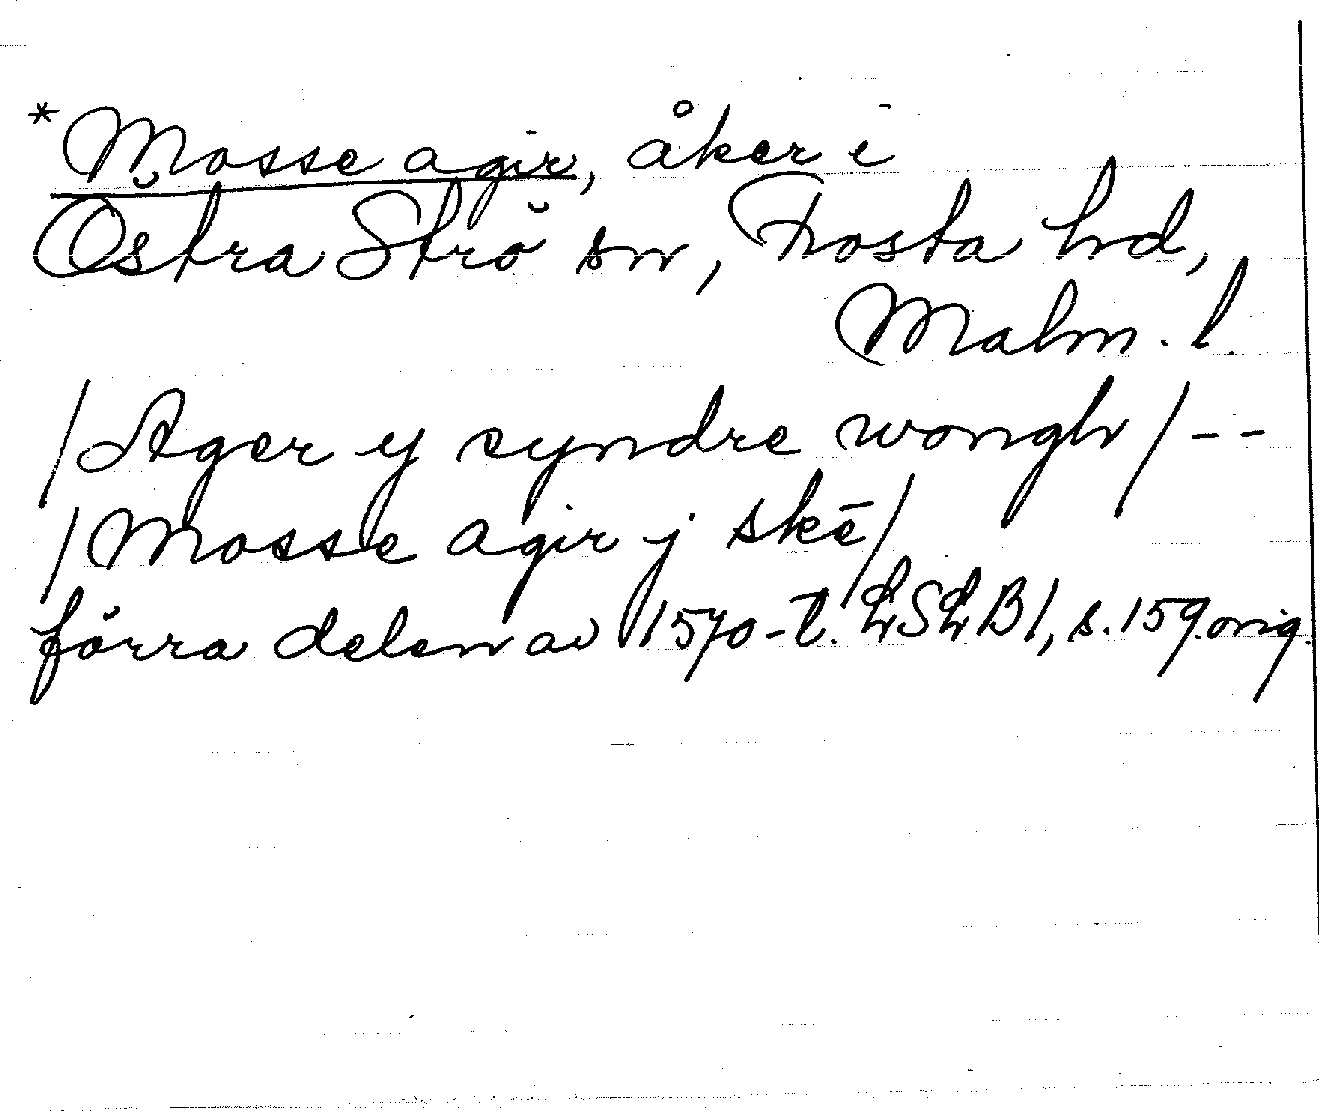 *Mosse agir, åker i
Östra Strö sn, Frosta hd,
Malm. l.
/Ager y syndre wongh/--
/Mosse agir j skē/
förra delen av 1570-t. LSLB1, s.159.orig.